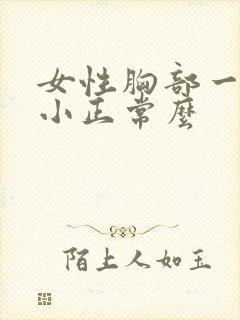 女性胸部一
小正常麼
陌上人如玉